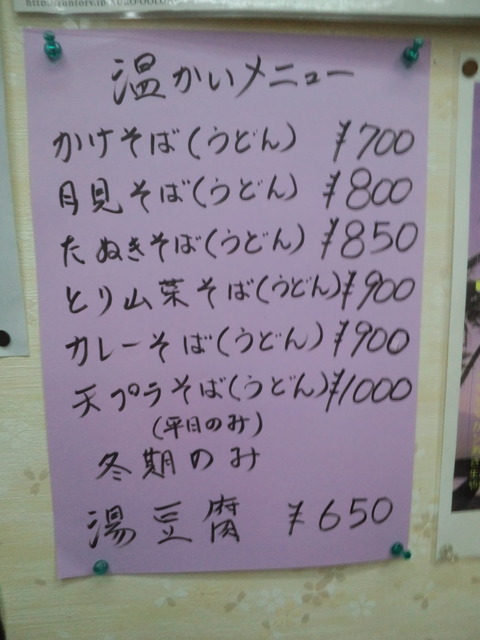 温かいメニュー
かけそば(うどん) ¥700
月見そば(うどん) ¥800
たぬきそば(うどん) ¥850
とり山菜そば(うどん) ¥900
カレーそば(うどん) ¥900
天プラそば(うどん) ¥1000
(平日のみ)
冬期のみ
湯豆腐 ¥650